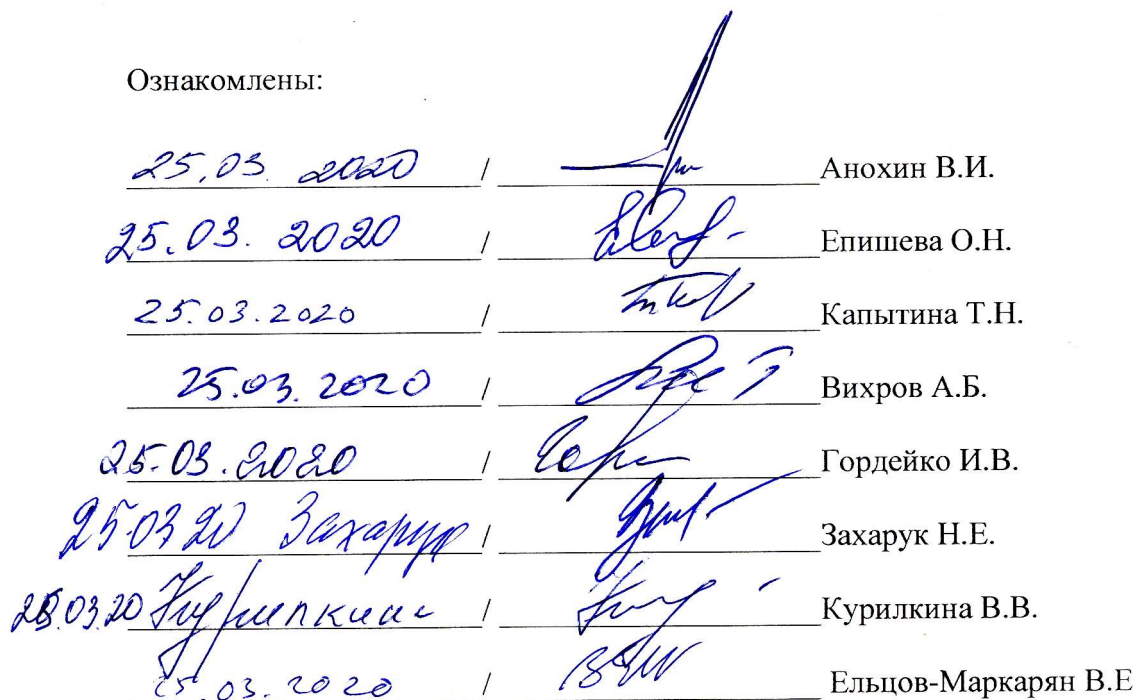 Ознакомлены:
25.03.2020 / Анохин В.И.
25.03.2020 / Епишева О.Н.
25.03.2020 / Капытина Т.Н.
25.03.2020 / Вихров А.Б.
25.03.2020 / Гордейко И.В.
25.03 20 Захарук / Захарук Н.Е.
03.20 Курилкина / Курилкина В.В.
25.03.2020 / Ельцов-Маркарян В.Е